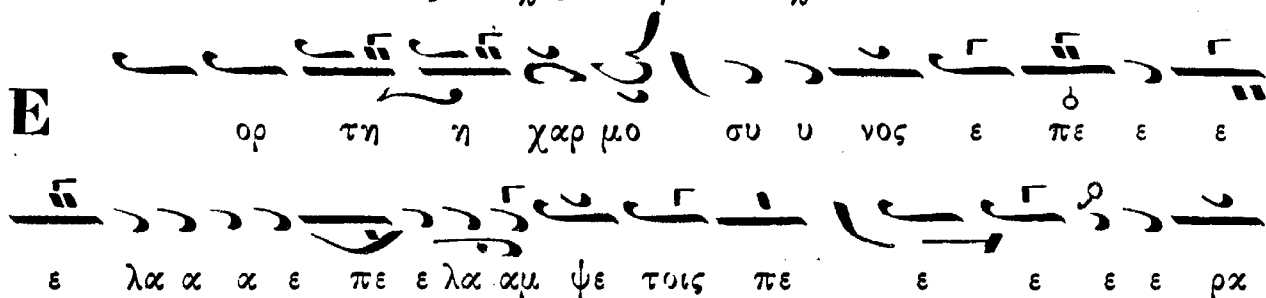 Ε ορ τη η χαρ μο συ υ νος ε πε ε ε
ε λα α α ε πε ε λα αμ ψε τοις πε ε ε ε ε ρα